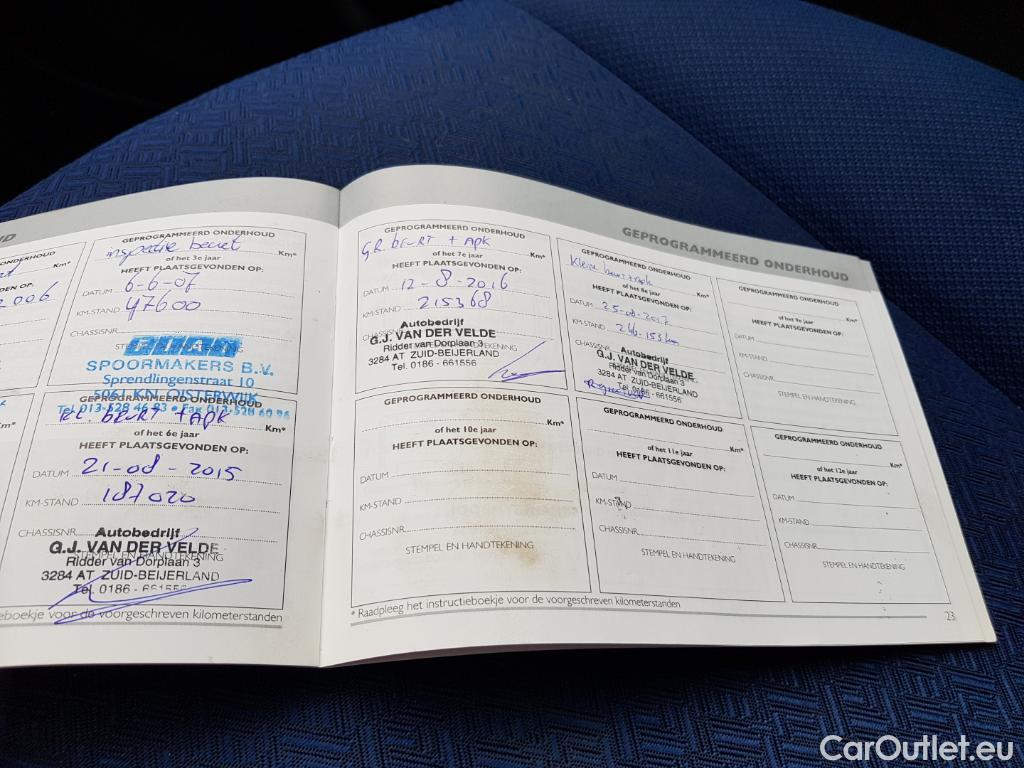 GEPROGRAMMEERD ONDERHOUD
inspectie beurt Km*
of het 3e jaar
HEEFT PLAATSGEVONDEN OP:
DATUM 6-6-07
KM-STAND 47600
CHASSISNR.
FIAT
SPOORMAKERS B.V.
Sprendlingenstraat 10
5061 KN OISTERWIJK
Tel. 013-528 46 83 • Fax 013-528 60 96
2006
GEPROGRAMMEERD ONDERHOUD
BEURT + APK Km*
of het 6e jaar
HEEFT PLAATSGEVONDEN OP:
DATUM 21-08-2015
KM-STAND 187020
CHASSISNR.
Autobedrijf
G.J. VAN DER VELDE
STEMPEL EN HANDTEKENING
Ridder van Dorplaan 3
3284 AT ZUID-BEIJERLAND
Tel. 0186 - 661556
voor de voorgeschreven kilometerstanden
GEPROGRAMMEERD ONDERHOUD
GEPROGRAMMEERD ONDERHOUD
GR BEURT + APK Km*
of het 7e jaar
HEEFT PLAATSGEVONDEN OP:
DATUM 12-8-2016
KM-STAND 215368
CHASSISNR.
Autobedrijf
G.J. VAN DER VELDE
Ridder van Dorplaan 3
3284 AT ZUID-BEIJERLAND
Tel. 0186 - 661556
GEPROGRAMMEERD ONDERHOUD
Kleine beurt + apk Km*
of het 8e jaar
HEEFT PLAATSGEVONDEN OP:
DATUM 25-08-2017
KM-STAND 246.153 km
CHASSISNR.
Autobedrijf
G.J. VAN DER VELDE
Ridder van Dorplaan 3
3284 AT ZUID-BEIJERLAND
Tel. 0186 - 661556
GEPROGRAMMEERD ONDERHOUD
Km*
of het 9e jaar
HEEFT PLAATSGEVONDEN OP:
DATUM
KM-STAND
CHASSISNR.
STEMPEL EN HANDTEKENING
GEPROGRAMMEERD ONDERHOUD
Km*
of het 10e jaar
HEEFT PLAATSGEVONDEN OP:
DATUM
KM-STAND
CHASSISNR.
STEMPEL EN HANDTEKENING
GEPROGRAMMEERD ONDERHOUD
Km*
of het 11e jaar
HEEFT PLAATSGEVONDEN OP:
DATUM
KM-STAND
CHASSISNR.
STEMPEL EN HANDTEKENING
GEPROGRAMMEERD ONDERHOUD
Km*
of het 12e jaar
HEEFT PLAATSGEVONDEN OP:
DATUM
KM-STAND
CHASSISNR.
STEMPEL EN HANDTEKENING
* Raadpleeg het instructieboekje voor de voorgeschreven kilometerstanden
23
CarOutlet.eu